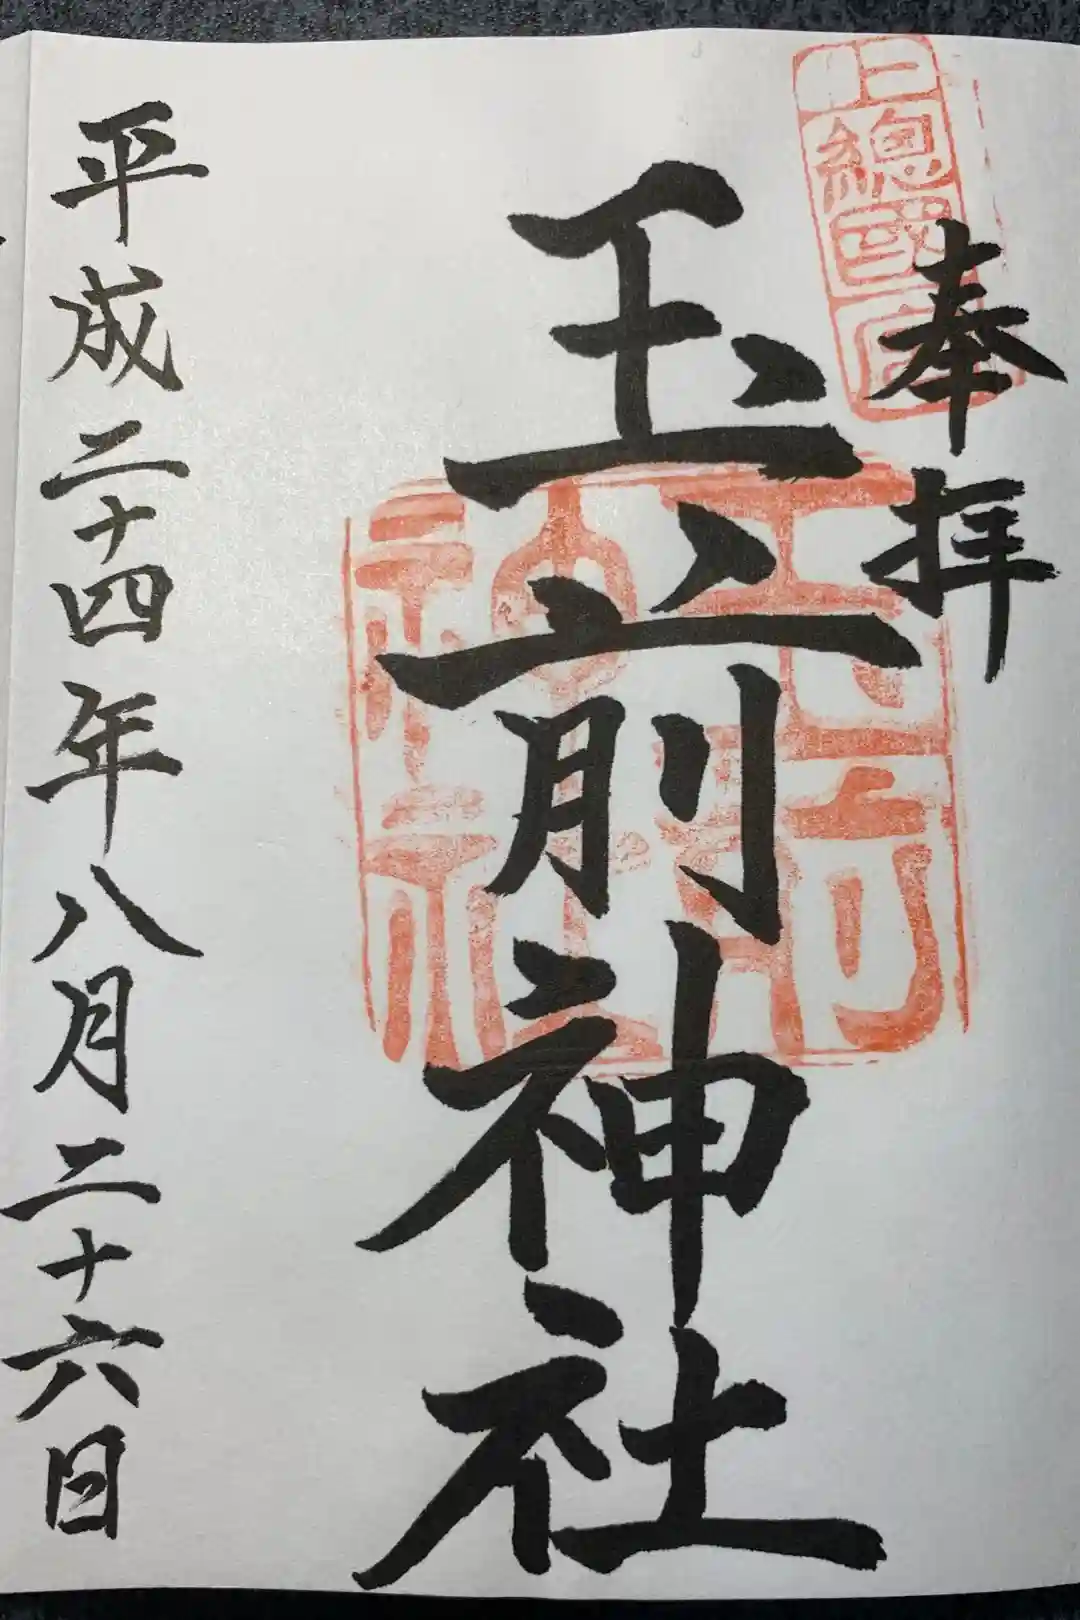 總國
奉拝
玉前神社
玉前神社
平成二十四年八月二十六日